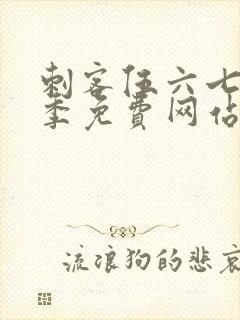 刺客伍六七
季免费网站
流浪狗的悲哀